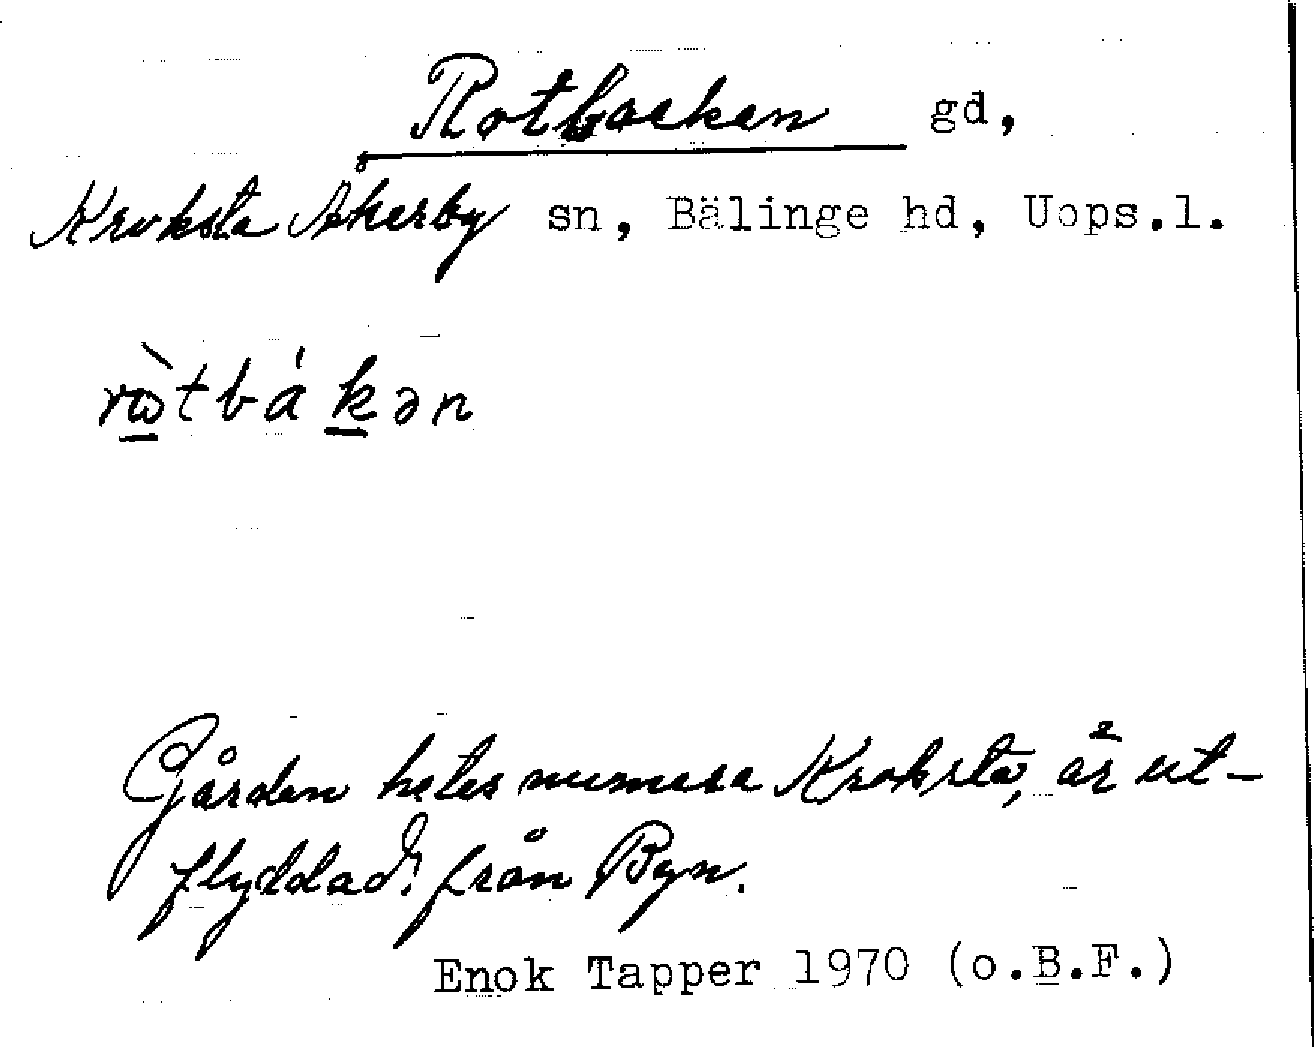 Rotbacken gd,
Kroksta Åkerby sn, Bälinge hd, Upps.l.
rὼtbákən
Gården hetes numera Kroksta, är ut-
flyddad från Byn.
Enok Tapper 1970 (o.B.F.)